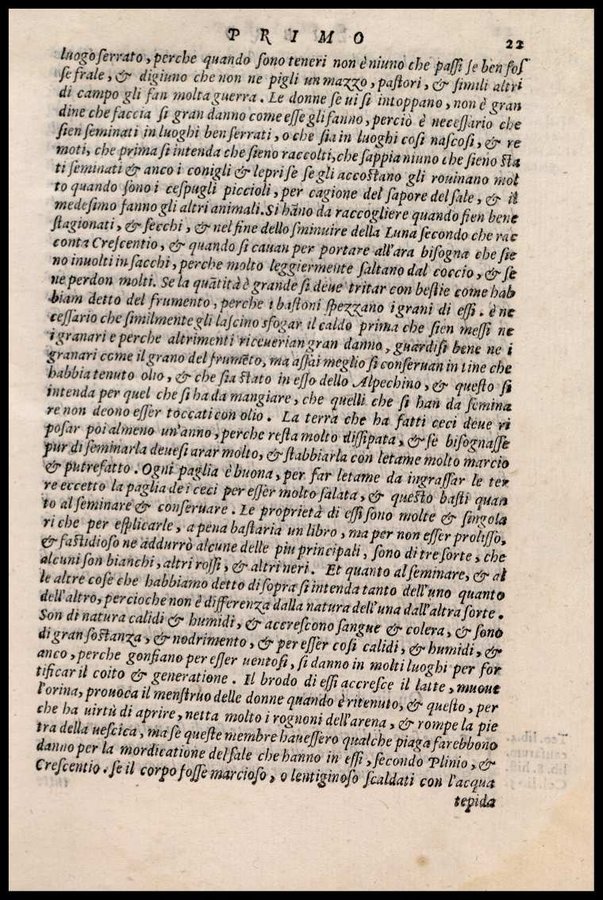 PRIMO 22
luogo serrato, perche quando sono teneri non è niuno che passi se ben fos
se frale, & digiuno che non ne pigli un mazzo, pastori, & simili altri
di campo gli fan molta guerra. Le donne se ui si intoppano, non è gran
dine che faccia si gran danno come esse gli fanno, perciò è necessario che
sien seminati in luoghi ben serrati, o che sia in luoghi cosi nascosi, & re
moti, che prima si intenda che sieno raccolti, che sappia niuno che sieno sta
ti seminati & anco i conigli & lepri se se gli accostano gli rouinano mol
to quando sono i cespugli piccioli, per cagione del sapore del sale, & il
medesimo fanno gli altri animali. Si hãno da raccogliere quando sien bene
stagionati, & secchi, & nel fine dello sminuire della Luna secondo che rac
conta Crescentio, & quando si cauan per portare all'ara bisogna che sie
no inuolti in sacchi, perche molto leggiermente saltano dal coccio, & se
ne perdon molti. Se la quãtità è grande si deue tritar con bestie come hab
biam detto del frumento, perche i bastoni spezzano i grani di essi. è ne
cessario che similmente gli lascino sfogar il caldo prima che sien messi ne
i granari e perche altrimenti riceuerian gran danno, guardisi bene ne i
granari come il grano del frumẽto, ma assai meglio si conseruan in tine che
habbia tenuto olio, & che sia stato in esso dello Alpechino, & questo si
intenda per quel che si ha da mangiare, che quelli che si han da semina
re non deono esser toccati con olio. La terra che ha fatti ceci deue ri
posar poi almeno un'anno, perche resta molto dissipata, & se bisognasse
pur di seminarla deuesi arar molto, & stabbiarla con letame molto marcio
& putrefatto. Ogni paglia è buona, per far letame da ingrassar le ter
re eccetto la paglia dei ceci per esser molto salata, & questo basti quan
to al seminare & conseruare. Le proprietà di essi sono molte & singola
ri che per esplicarle, a pena bastaria un libro, ma per non esser prolisso,
& fastudioso ne addurrò alcune delle piu principali, sono di tre sorte, che
alcuni son bianchi, altri rossi, & altri neri. Et quanto al seminare, & al
le altre cose che habbiamo detto di sopra si intenda tanto dell'uno quanto
dell'altro, percioche non è differenza dalla natura dell'una dall'altra sorte.
Son di natura calidi & humidi, & accrescono sangue & colera, & sono
di gran sostanza, & nodrimento, & per esser cosi calidi, & humidi, &
anco, perche gonfiano per esser uentosi, si danno in molti luoghi per for
tificar il coito & generatione. Il brodo di essi accresce il latte, muoue
l'orina, prouoca il menstruo delle donne quando è ritenuto, & questo, per
che ha uirtù di aprire, netta molto i rognoni dell'arena, & rompe la pie
tra della uescica, ma se queste membre hauessero qualche piaga farebbono
danno per la mordicatione del sale che hanno in essi, secondo Plinio, &
Crescentio. se il corpo fosse marcioso, o lentiginoso scaldati con l'acqua
tepida